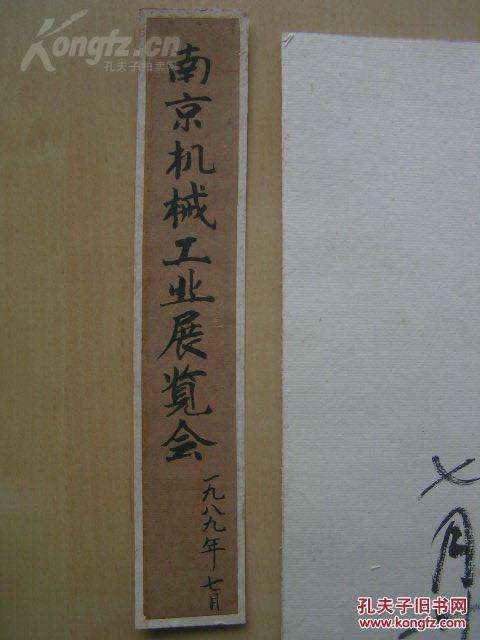 Kongfz.cn
孔夫子旧书网
南京机械工业展览会
一九八九年 七月
七月
孔夫子旧书网
www.kongfz.com